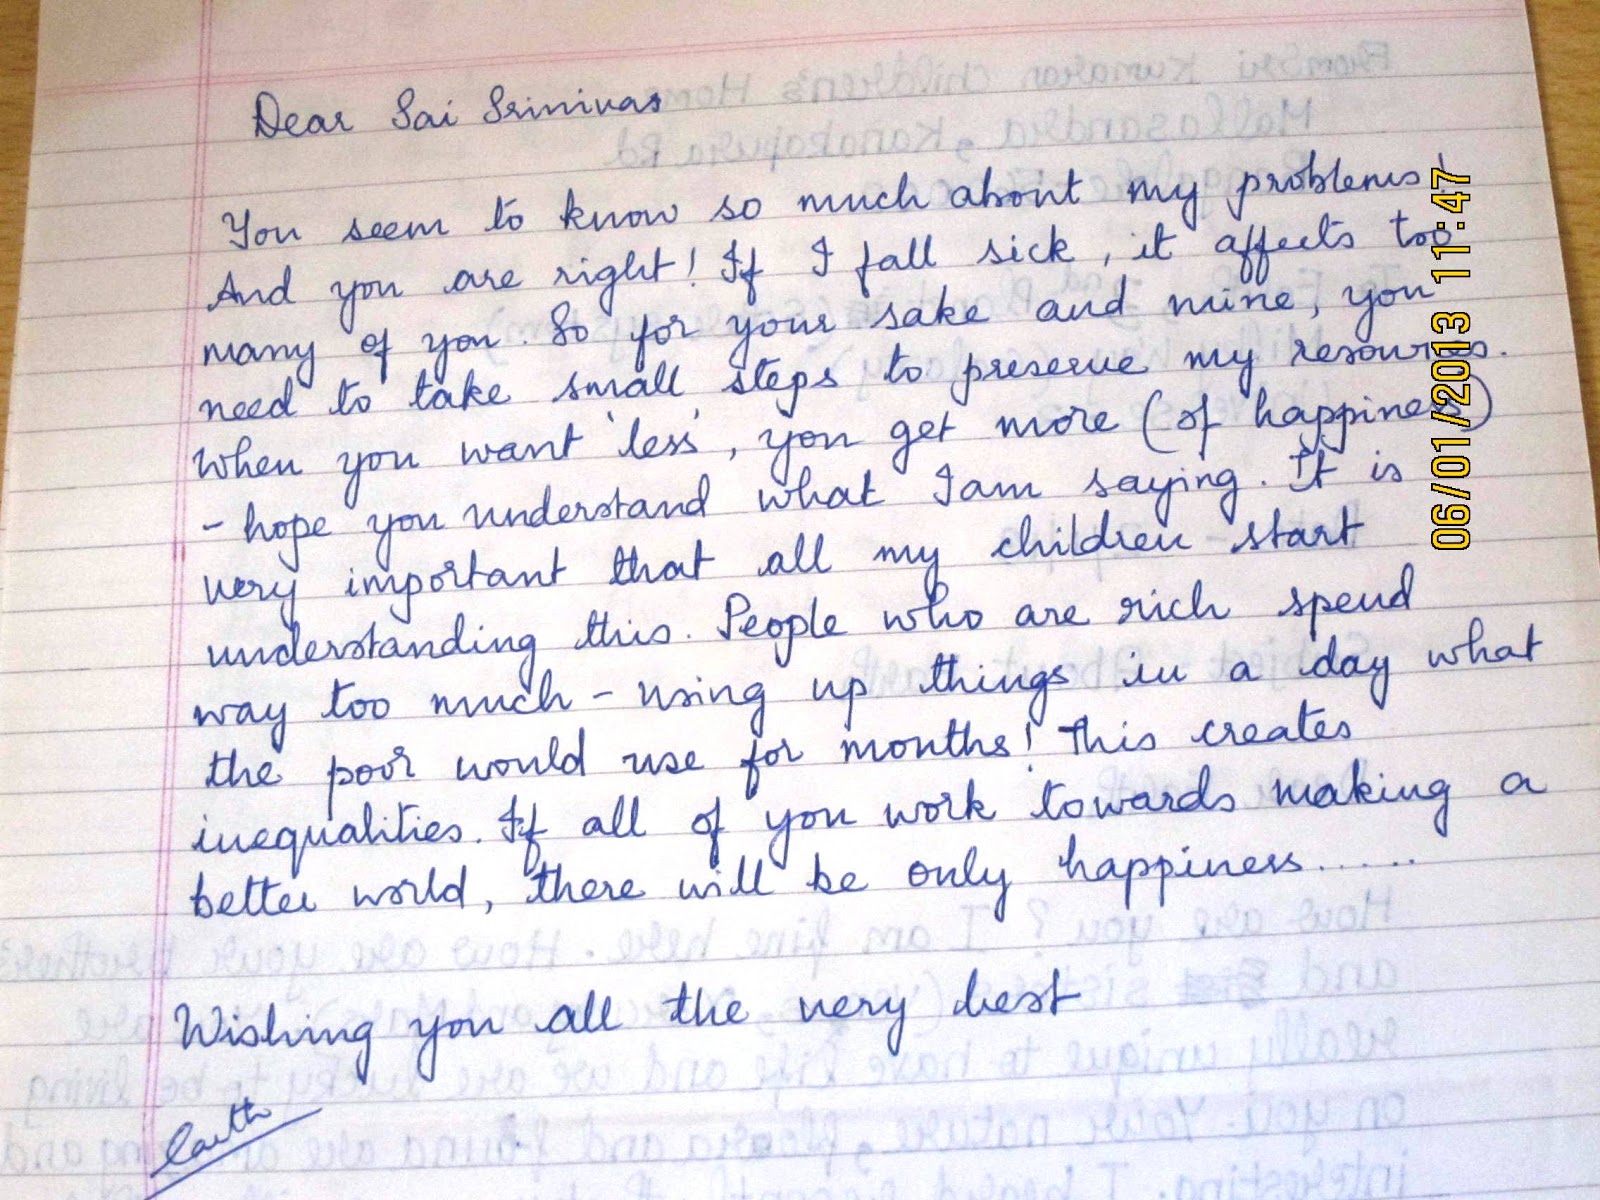 Dear Sai Srinivas
You seem to know so much about my problems!
And you are right! If I fall sick, it affects too
many of you. So for your sake and mine, you
need to take small steps to preserve my resources.
When you want 'less', you get more (of happiness)
- hope you understand what I am saying. It is
very important that all my children start
understanding this. People who are rich spend
way too much - using up things in a day what
the poor would use for months! This creates
inequalities. If all of you work towards making a
better world, there will be only happiness......
Wishing you all the very best
Earth
06/01/2013 11:47